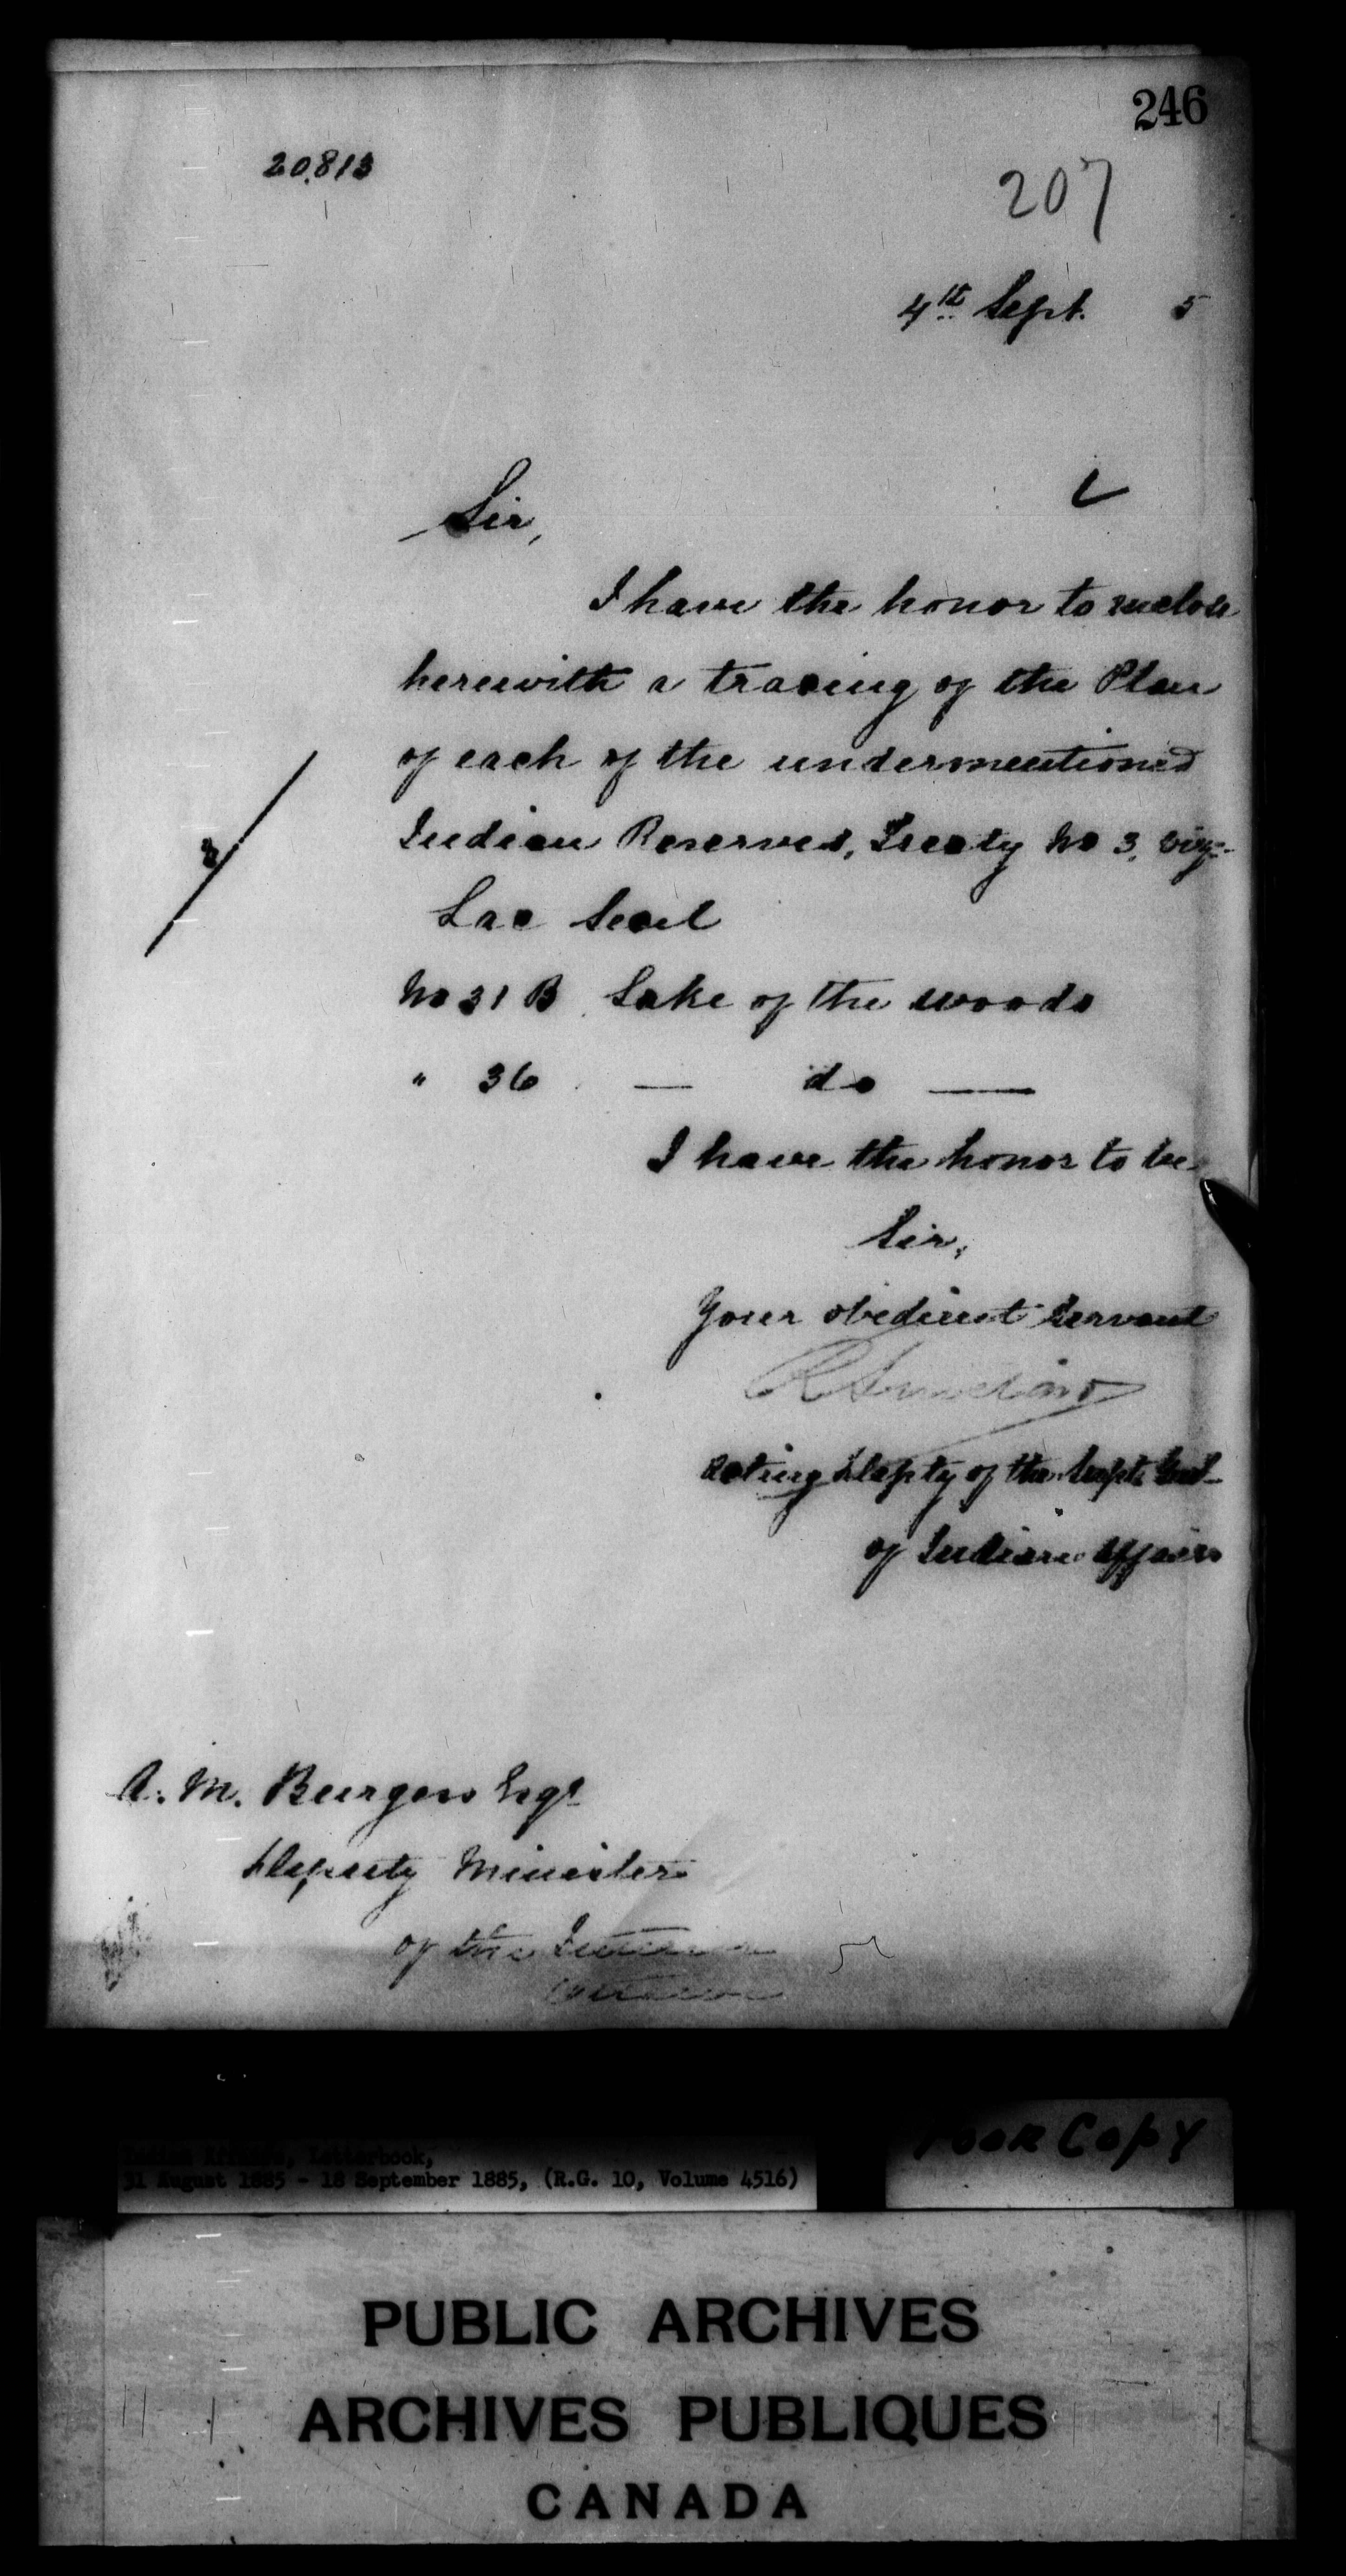 246
20,813
207
4th Sept. 5
Sir,
I have the honor to enclose
herewith a tracing of the Plan
of each of the undermentioned
Indian Reserves, Treaty No 3, viz:-
3
Lac Seul
No 31 B Lake of the woods
" 36 — do —
I have the honor to be
Sir,
Your obedient servant
R Sinclair
Acting Depty of the Supt. Genl
of Indian Affairs
A. M. Burgess Esqr
Deputy Minister
of the Interior
Indian Affairs, Letterbook,
31 August 1885 - 18 September 1885, (R.G. 10, Volume 4516)
Poor Copy
PUBLIC ARCHIVES
ARCHIVES PUBLIQUES
CANADA